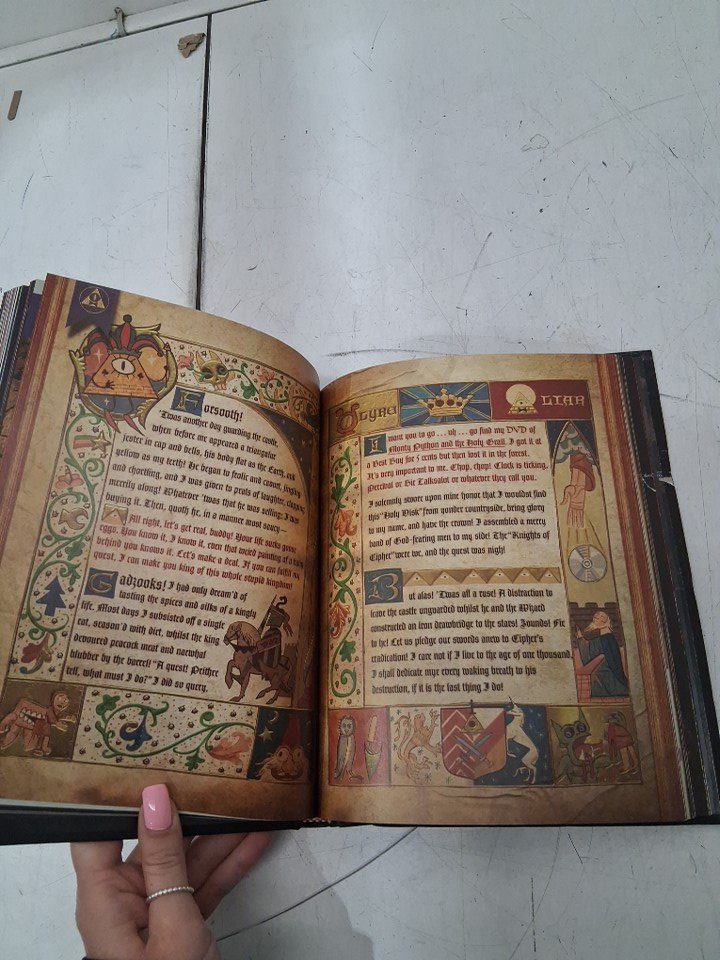 Forsooth!
'Twas another day guarding the castle,
when before me appeared a triangular
jester in cap and bells, his body flat as the Earth, and
yellow as my teeth! He began to frolic and cavort, jingling
and chortling, and I was given to peals of laughter, clapping
merrily along! Whatever 'twas that he was selling; I was
buying it! Then, quoth he, in a manner most saucy—
All right, let's get real, buddy! Your life sucks goose
eggs. You know it, I know it, even that weird painting of a
behind you knows it. Let's make a deal. If you can fulfill my
quest, I can make you king of this whole stupid kingdom!
Gadzooks! I had only dream'd of
tasting the spices and silks of a kingly
life. Most days I subsisted off a single
oat, season'd with dirt, whilst the king
devoured peacock meat and narwhal
blubber by the barrel! "A quest! Prithee
tell, what must I do?" I did so query.
LIAR
I want you to go . . . uh . . . go find my DVD of
Monty Python and the Holy Grail. I got it at
a Best Buy for 5 cents but then lost it in the forest.
It's very important to me. Chop, chop! Clock is ticking,
Percival or Sir Talksalot or whatever they call you.
I solemnly swore upon mine honor that I wouldst find
this "Holy Disk" from yonder countryside, bring glory
to my name, and have the crown! I assembled a merry
band of God-fearing men to my side! The "Knights of
Cipher" were we, and the quest was nigh!
But alas! 'Twas all a ruse! A distraction to
leave the castle unguarded whilst he and the Wizard
constructed an iron drawbridge to the stars! Zounds! Fie
to he! Let us pledge our swords anew to Cipher's
eradication! I care not if I live to the age of one thousand,
I shall dedicate mye every waking breath to his
destruction, if it is the last thing I do!